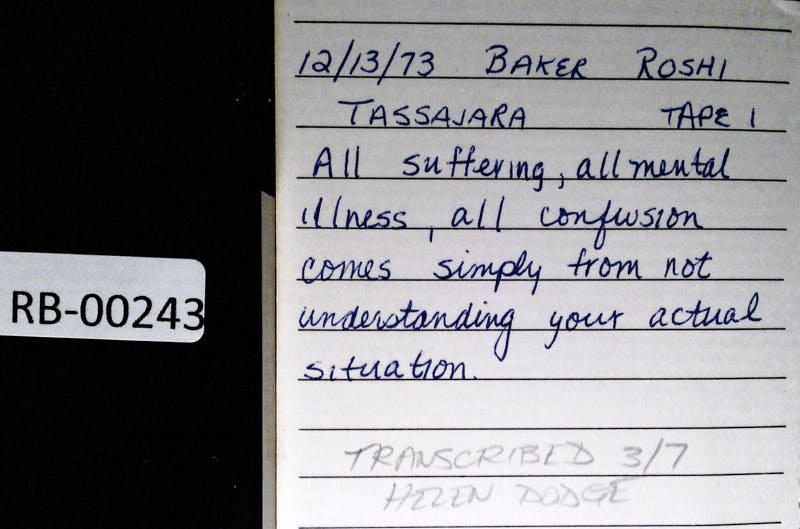 12/13/73 BAKER ROSHI
TASSAJARA TAPE 1
All suffering, all mental
illness, all confusion
comes simply from not
understanding your actual
situation.
TRANSCRIBED 3/7
HELEN DODGE
RB-00243